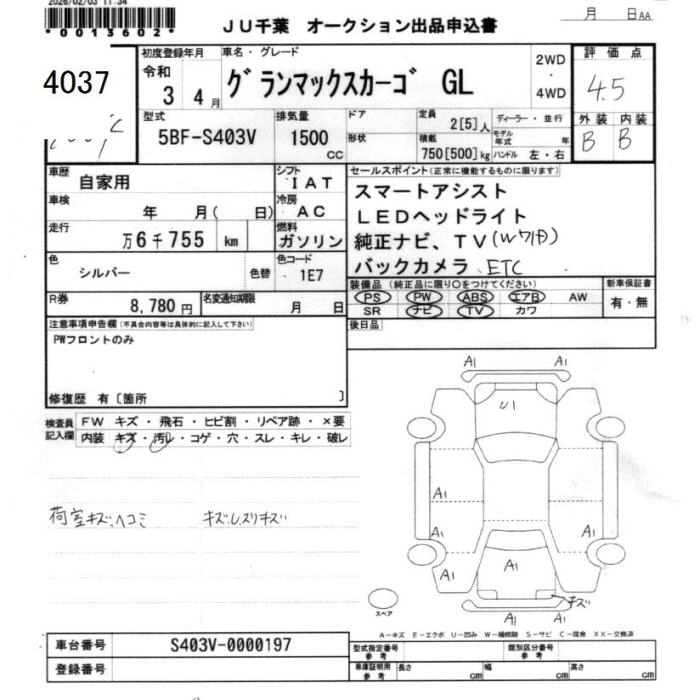 2026/02/03 11:34
*0013602*
JU千葉 オークション出品申込書
月 日AA
4037
初度登録年月
令和
3年4月
車名・グレード
グランマックスカーゴ GL
2WD
・
4WD
評価点
4.5
型式
5BF-S403V
排気量
1500
CC
ドア
形状
定員
2[5]人
積載
750[500]kg
ディーラー・並行
モデル年式 年
ハンドル 左・右
外装 内装
B B
車歴
自家用
シフト
IAT
車検
年 月( 日)
冷房
AC
走行
万6千755 km
燃料
ガソリン
色
シルバー
色替
色コード
1E7
R券
8,780円
名変通知期限
月 日
セールスポイント(正常に機能するものに限ります)
スマートアシスト
LEDヘッドライト
純正ナビ、TV(Wフカ)
バックカメラ ETC
装備品 (純正品に限り○をつけてください)
PS PW ABS エアB AW
SR ナビ TV カワ
新車保証書
有・無
後日品
注意事項申告欄(不具合内容等は具体的に記入して下さい)
PWフロントのみ
修復歴 有〔箇所 〕
検査員記入欄
FW キズ・飛石・ヒビ割・リペア跡・×要
内装 キズ・汚レ・コゲ・穴・スレ・キレ・破レ
荷室キズ、ヘコミ キズし、スリキズ
A1 A1
U1
A1
A1
A1 A1 A1
キズ
A1 A1
スペア
A-キズ E-エクボ U-凹み W-補修跡 S-サビ C-腐食 XX-交換済
車台番号
S403V-0000197
登録番号
型式指定番号
参考
類別区分番号
参考
車庫証明用
参考
長さ cm
幅 cm
高さ cm